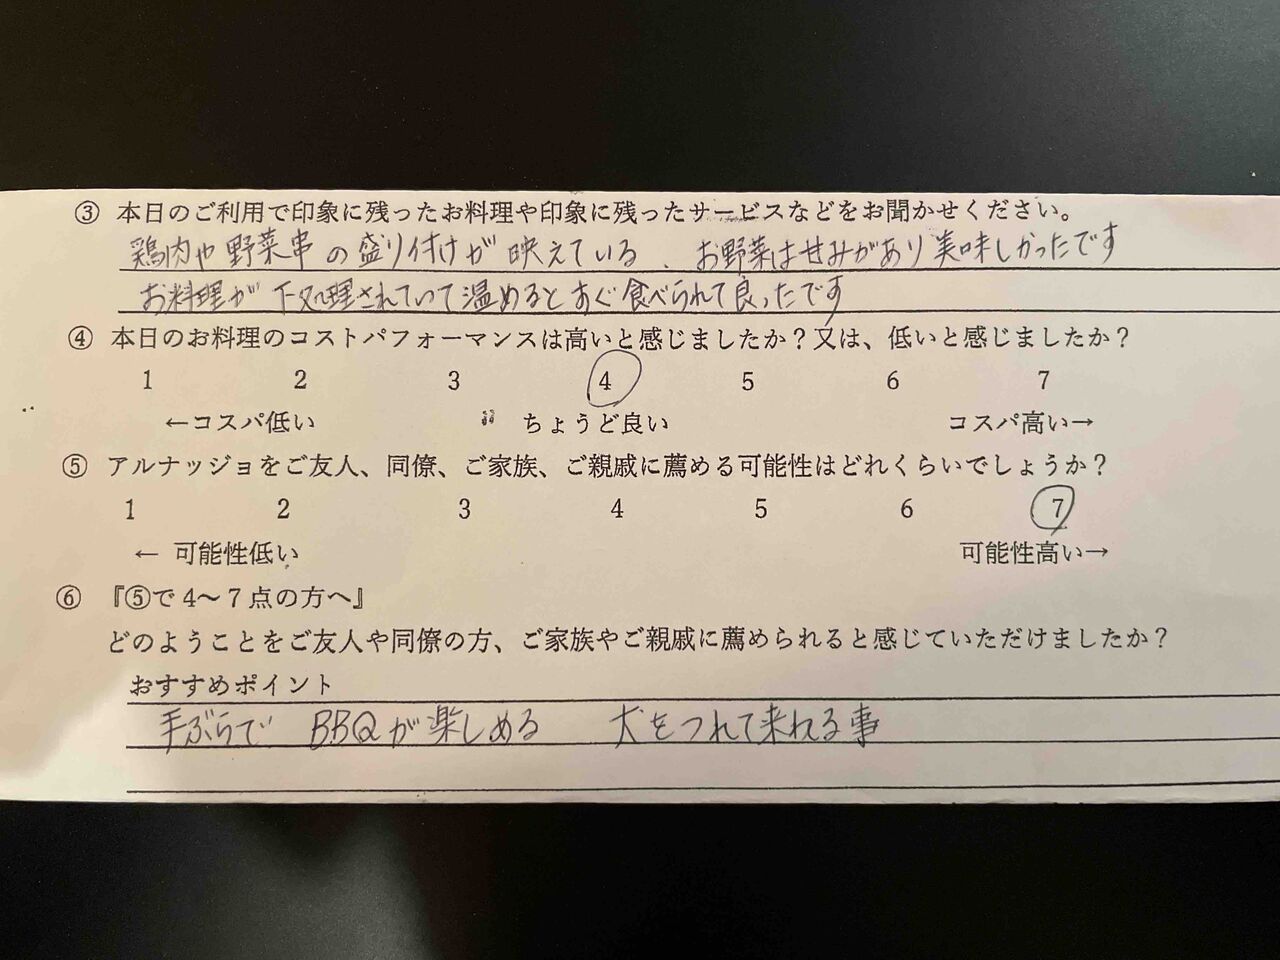 ③ 本日のご利用で印象に残ったお料理や印象に残ったサービスなどをお聞かせください。
鶏肉や野菜串の盛り付けが映えている、お野菜は甘みがあり美味しかったです
お料理が下処理されていて温めるとすぐ食べられて良ったです
④ 本日のお料理のコストパフォーマンスは高いと感じましたか？又は、低いと感じましたか？
1 2 3 4 5 6 7
←コスパ低い ちょうど良い コスパ高い→
⑤ アルナッジョをご友人、同僚、ご家族、ご親戚に薦める可能性はどれくらいでしょうか？
1 2 3 4 5 6 7
← 可能性低い 可能性高い→
⑥ 『⑤で4～7点の方へ』
どのようことをご友人や同僚の方、ご家族やご親戚に薦められると感じていただけましたか？
おすすめポイント
手ぶらで BBQが楽しめる 犬をつれて来れる事